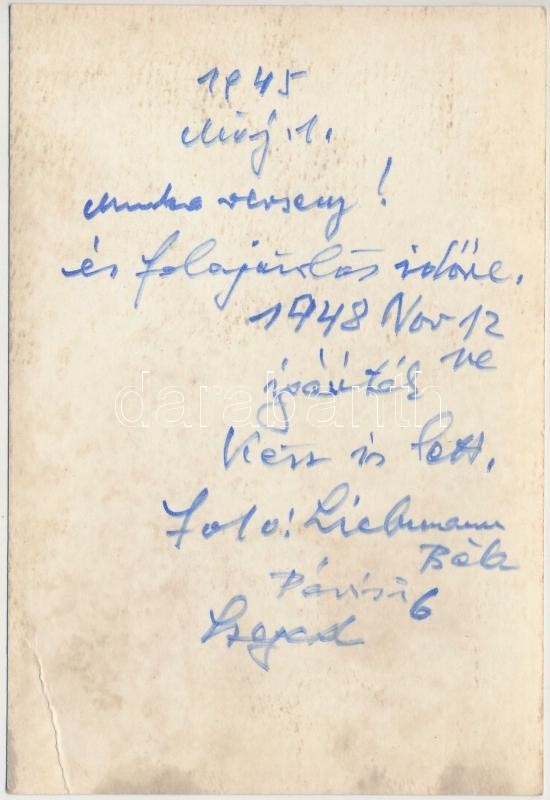 1945
Máj. 1.
Munka verseny!
és felajánlás időre.
1948 Nov 12
re
ígérték
Kész is lett.
Foto: Liebmann
Béla
Párisi 6
Szeged
darabanth